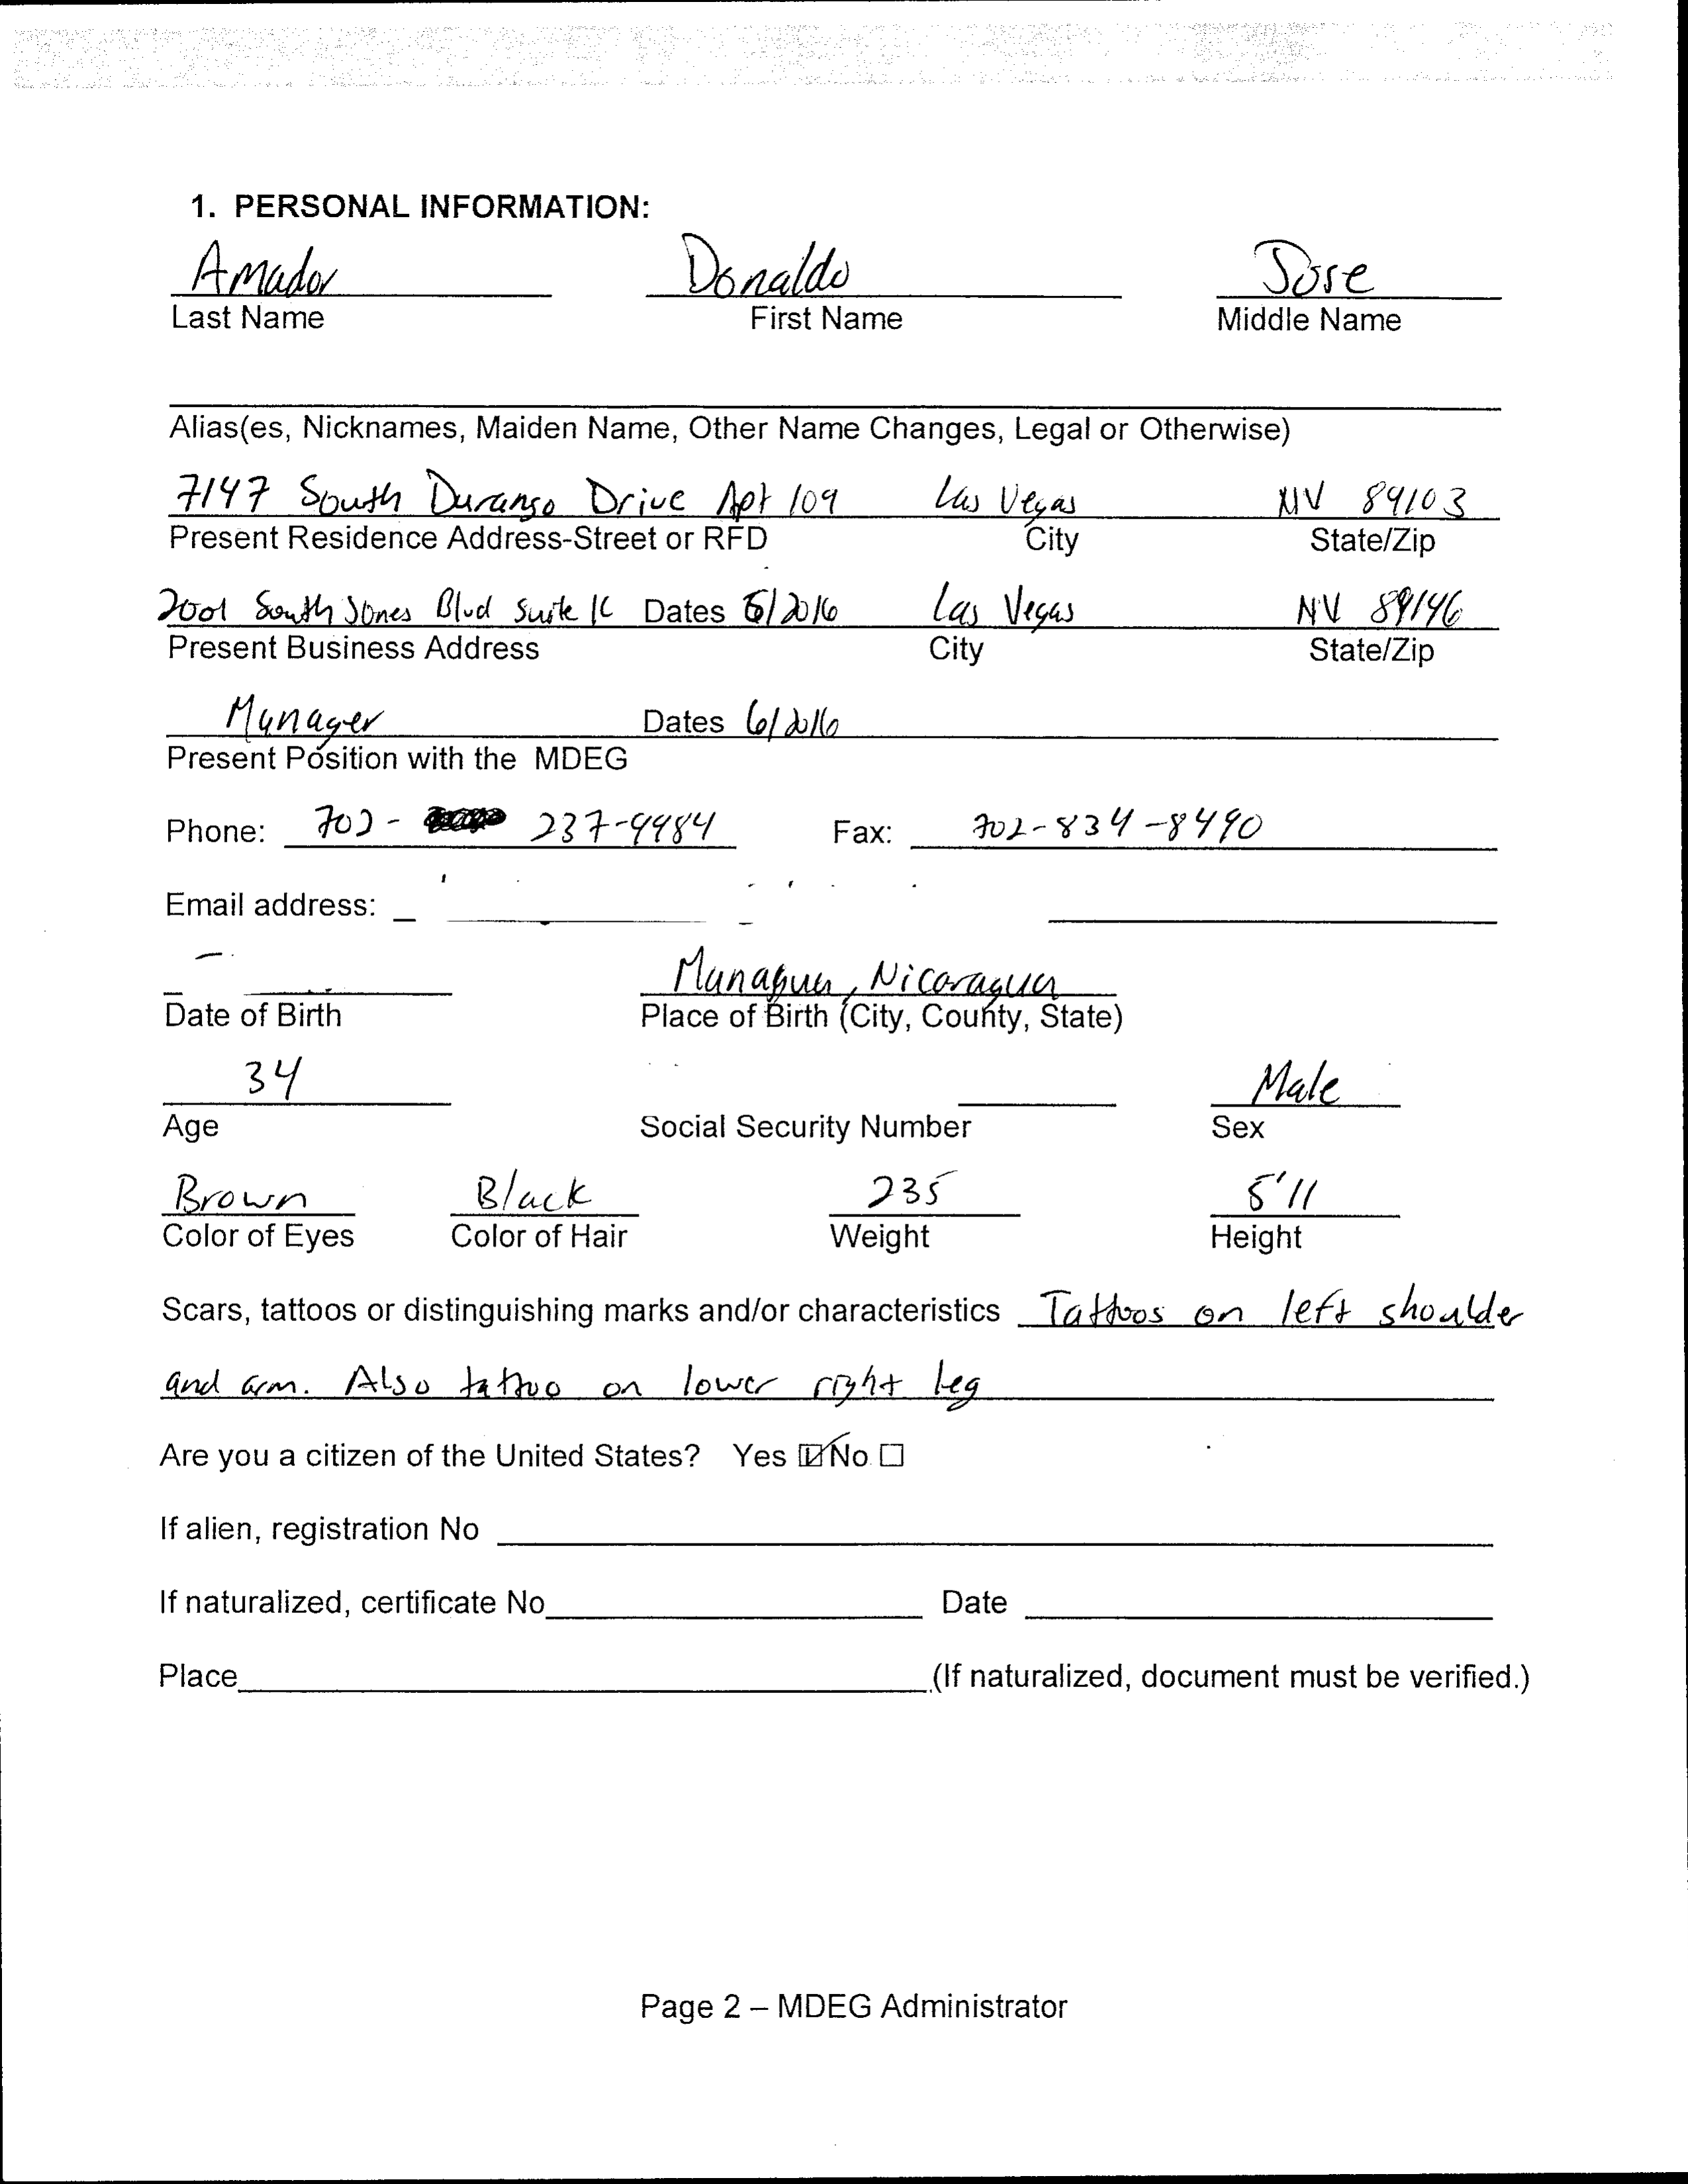 1. PERSONAL INFORMATION:
Amador Donaldo Jose
Last Name First Name Middle Name
Alias(es, Nicknames, Maiden Name, Other Name Changes, Legal or Otherwise)
7147 South Durango Drive Apt 109 Las Vegas NV 89103
Present Residence Address-Street or RFD City State/Zip
2001 South Jones Blvd Suite 1C Dates 6/2016 Las Vegas NV 89146
Present Business Address City State/Zip
Manager Dates 6/2016
Present Position with the MDEG
Phone: 702- 237-9984 Fax: 702-834-8490
Email address:
Managua, Nicaragua
Date of Birth Place of Birth (City, County, State)
34 Male
Age Social Security Number Sex
Brown Black 235 5'11
Color of Eyes Color of Hair Weight Height
Scars, tattoos or distinguishing marks and/or characteristics Tattoos on left shoulder
and arm. Also tattoo on lower right leg
Are you a citizen of the United States? Yes ☑ No ☐
If alien, registration No
If naturalized, certificate No Date
Place (If naturalized, document must be verified.)
Page 2 – MDEG Administrator